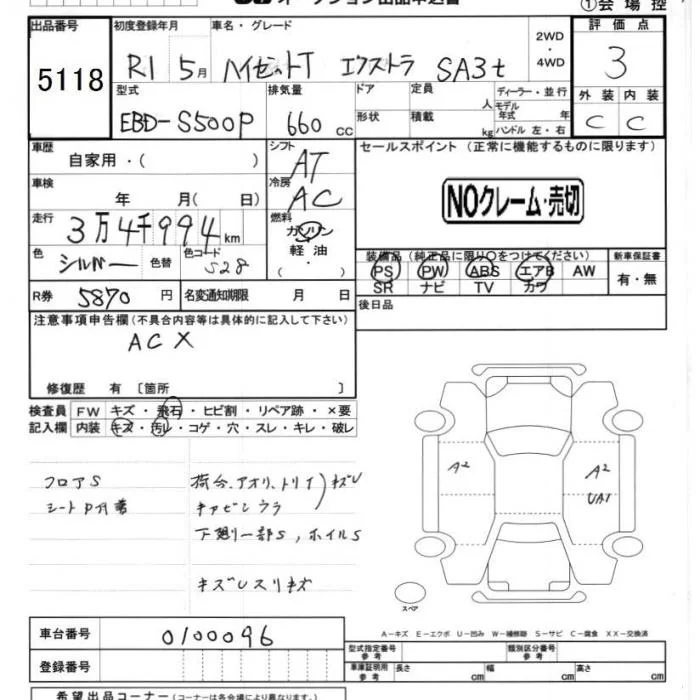 ①会場控
出品番号 初度登録年月 車名・グレード 2WD ・ 4WD 評価点
5118 R1 5月 ハイゼットT エクストラ SA3t 3
型式 排気量 ドア 定員 人 ディーラー・並行 モデル 年式 年 外装 内装
EBD-S500P 660 cc 形状 積載 kg ハンドル 左・右 C C
車歴 自家用・( ) シフト AT セールスポイント (正常に機能するものに限ります)
車検 年 月( 日) 冷房 AC NOクレーム・売切
走行 3万4千994km 燃料 ガソリン 軽油 ・( )
色 シルバー 色替 色コード S28
装備品 (純正品に限り○をつけてください) 新車保証書
PS PW ABS エアB AW 有・無
SR ナビ TV カワ
R券 5870円 名変通知期限 月 日 後日品
注意事項申告欄 (不具合内容等は具体的に記入して下さい)
ACX
修復歴 有 〔箇所 〕
検査員 FW キズ・飛石・ヒビ割・リペア跡・×要
記入欄 内装 キズ・汚レ・コゲ・穴・スレ・キレ・破レ
フロアS
荷台、アオリ、トリイ)キズU
キャビンウラ
下廻り一部S, ホイルS
A2 A2
UA1
スペア
A-キズ E-エクボ U-凹み W-補修跡 S-サビ C-腐食 XX-交換済
車台番号 0100096
登録番号
型式指定番号 参考 類別区分番号 参考
車庫証明用 参考 長さ cm 幅 cm 高さ cm
希望出品コーナー (コーナーは各会場により異なります。)